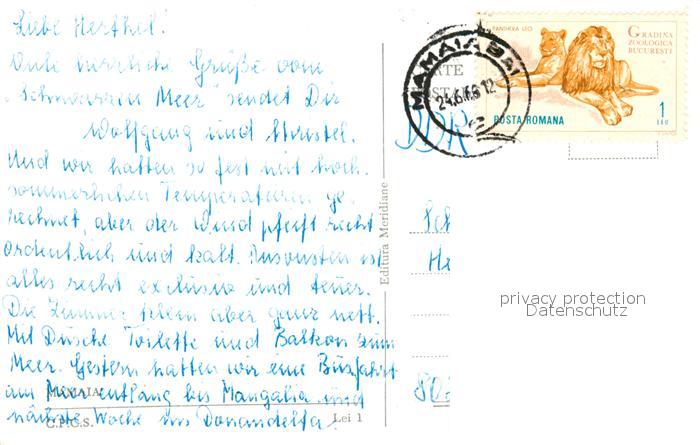 Liebe Herthel!
Viele herrliche Grüße vom
"Schwarzen Meer" sendet Dir
Wolfgang und Christel.
Und wir hatten so fest mit hoch-
sommerlichen Temperaturen ge-
rechnet, aber der Wind pfeift recht
ordentlich und kalt. Ansonsten ist
alles recht exclusiv und teuer.
Die Zimmer klein aber ganz nett.
Mit Dusche Toilette und Balkon zum
Meer. Gestern hatten wir eine Busfahrt
am Meer entlang bis Mangalia und
nächste Woche ins Donaudelta.
MAMAIA
C.P.C.S.
Lei 1
Editura Meridiane
MAMAIA BAI
24.6.66.12
PANTHERA LEO
GRADINA
ZOOLOGICA
BUCURESTI
POSTA ROMANA
1
LEU
DDR
Sch
He
80
privacy protection
Datenschutz